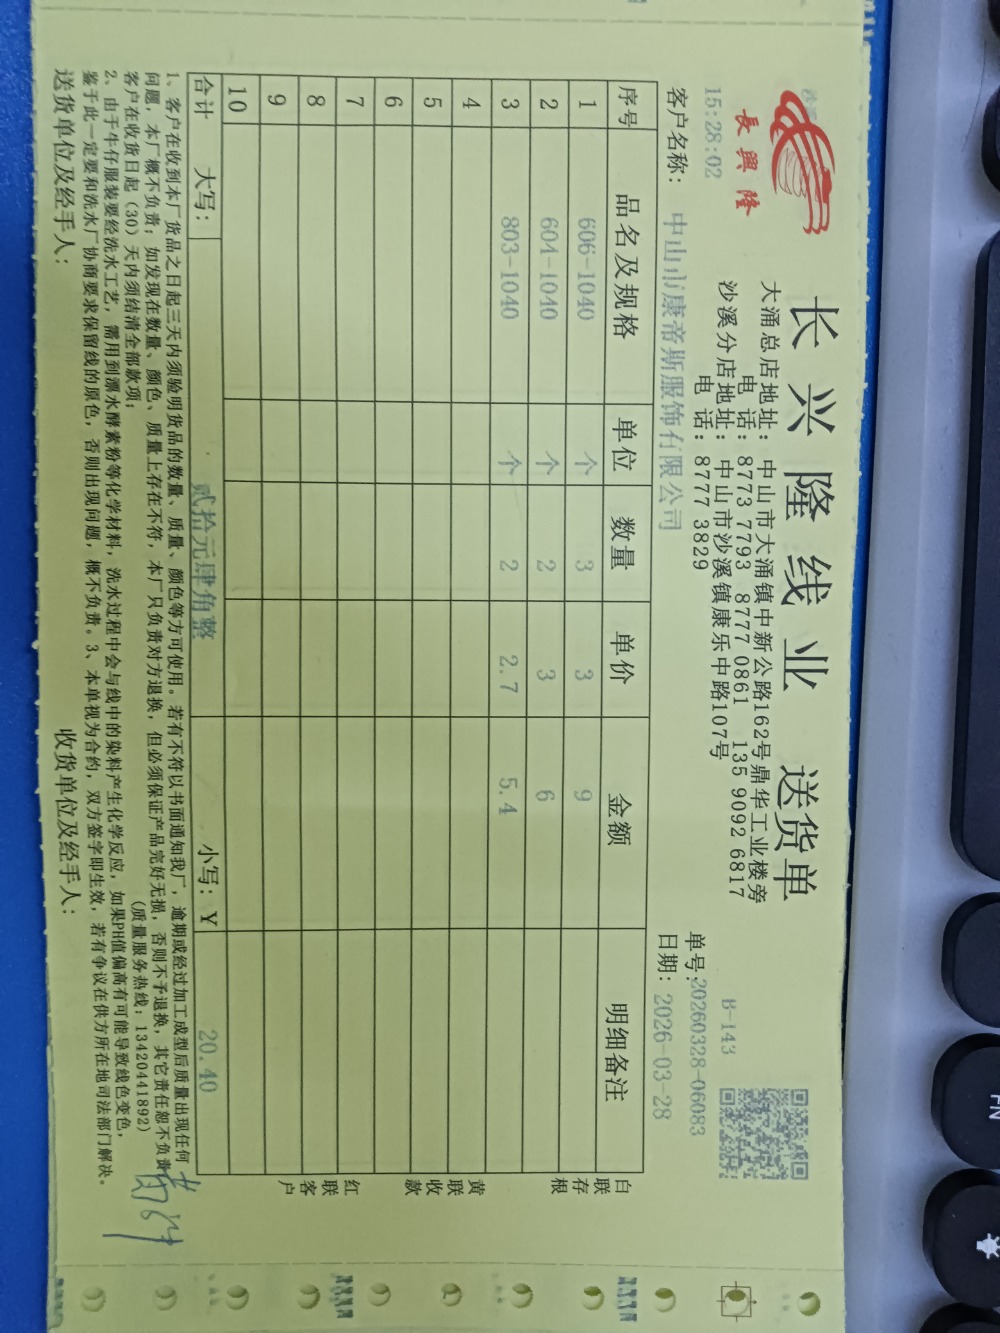 長興隆
长兴隆线业 送货单
大涌总店地址: 中山市大涌镇中新公路162号鼎华工业楼旁
电 话: 8773 7793 8777 0861 135 9092 6817
沙溪分店地址: 中山市沙溪镇康乐中路107号
电 话: 8777 3829
B-143
15:28:02
单号:20260328-06083
客户名称: 中山市康帝斯服饰有限公司
日期: 2026-03-28
序号 品名及规格 单位 数量 单价 金额 明细备注
1 606-1040 个 3 3 9
2 604-1040 个 2 3 6
3 803-1040 个 2 2.7 5.4
4
5
6
7
8
9
10
合计 大写: 贰拾元肆角整 小写: ¥ 20.40
白联存根
黄联收款
红联客户
1、客户在收到本厂货品之日起三天内须验明货品的数量、质量、颜色等方可使用。若有不符以书面通知我厂，逾期或经过加工成型后质量出现任何
问题，本厂概不负责；如发现在数量、颜色、质量上存在不符，本厂只负责对方退换，但必须保证产品完好无损，否则不予退换，其它责任恕不负责
客户在收货日起（30）天内须结清全部款项； （质量服务热线：13420441892）
2、由于牛仔服装要经洗水工艺，需用到漂水酵素粉等化学材料，洗水过程中会与线中的染料产生化学反应，如果PH值偏高有可能导致线色变色，
鉴于此一定要和洗水厂协商要求保留线的原色，否则出现问题，概不负责。3、本单视为合约，双方签字即生效，若有争议在供方所在地司法部门解决。
送货单位及经手人: 收货单位及经手人:
FN